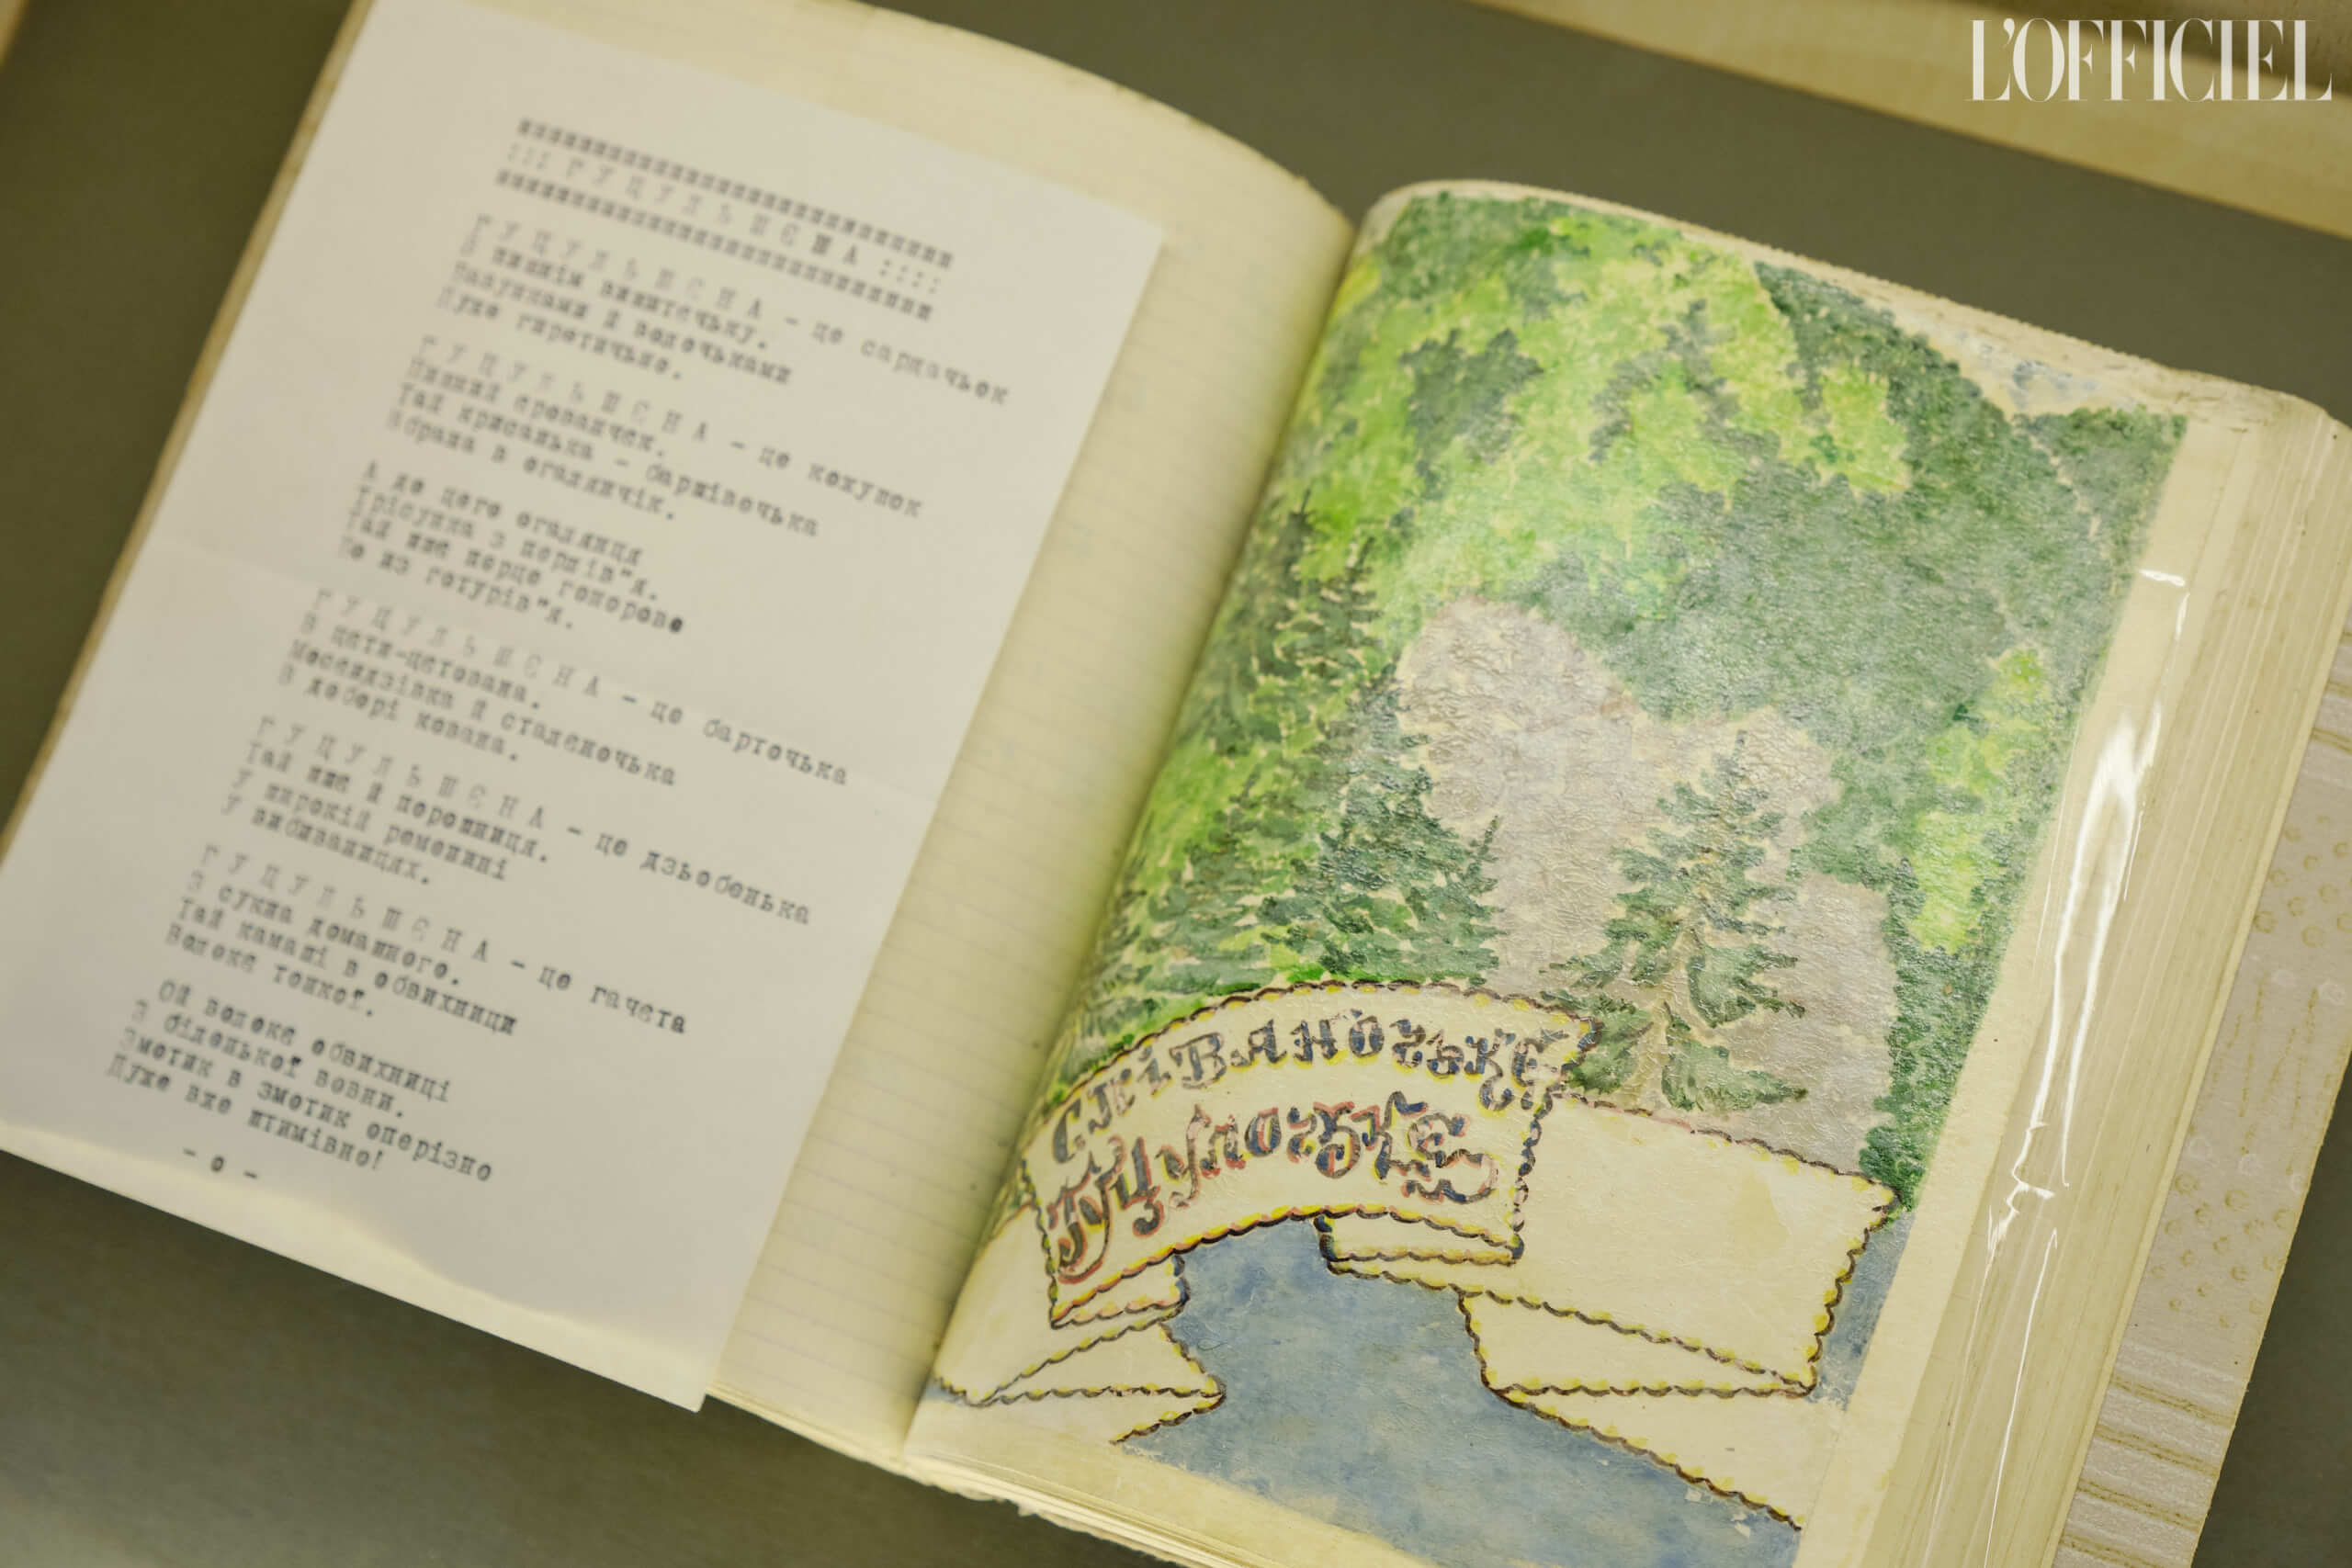 L'OFFICIEL
::: ГУЦУЛЬШЄНА ::::
ГУЦУЛЬШЄНА - це сардачьок
В пишнім вшитєчьку.
Пазунками й волочьками
Дуже гиретичьно.
ГУЦУЛЬШЄНА - це кожушок
Пишний єрованчєк.
Тай крисанька - баршівочька
Вбрана в огалянчік.
А до цего огалянця
Трісунка з першів"я.
Тай шшє перце гонорове
То из готурів"я.
ГУЦУЛЬШЄНА - це барточька
В цєти-цєтована.
Мосендзівка й сталєночька
В добері кована.
ГУЦУЛЬШЄНА - це дзьобенька
Тай шшє й порошниця.
У широкій ременині
У вибиваницях.
ГУЦУЛЬШЄНА - це гачєта
З сукна домашного.
Тай камаші в обвихници
Волоке тонкої.
Ой волокє обвихниці
З біленької вовни.
Змотик в змотик оперізно
Дуже вже штимівно!
- о -
Співаночькє
Гуцулоськє